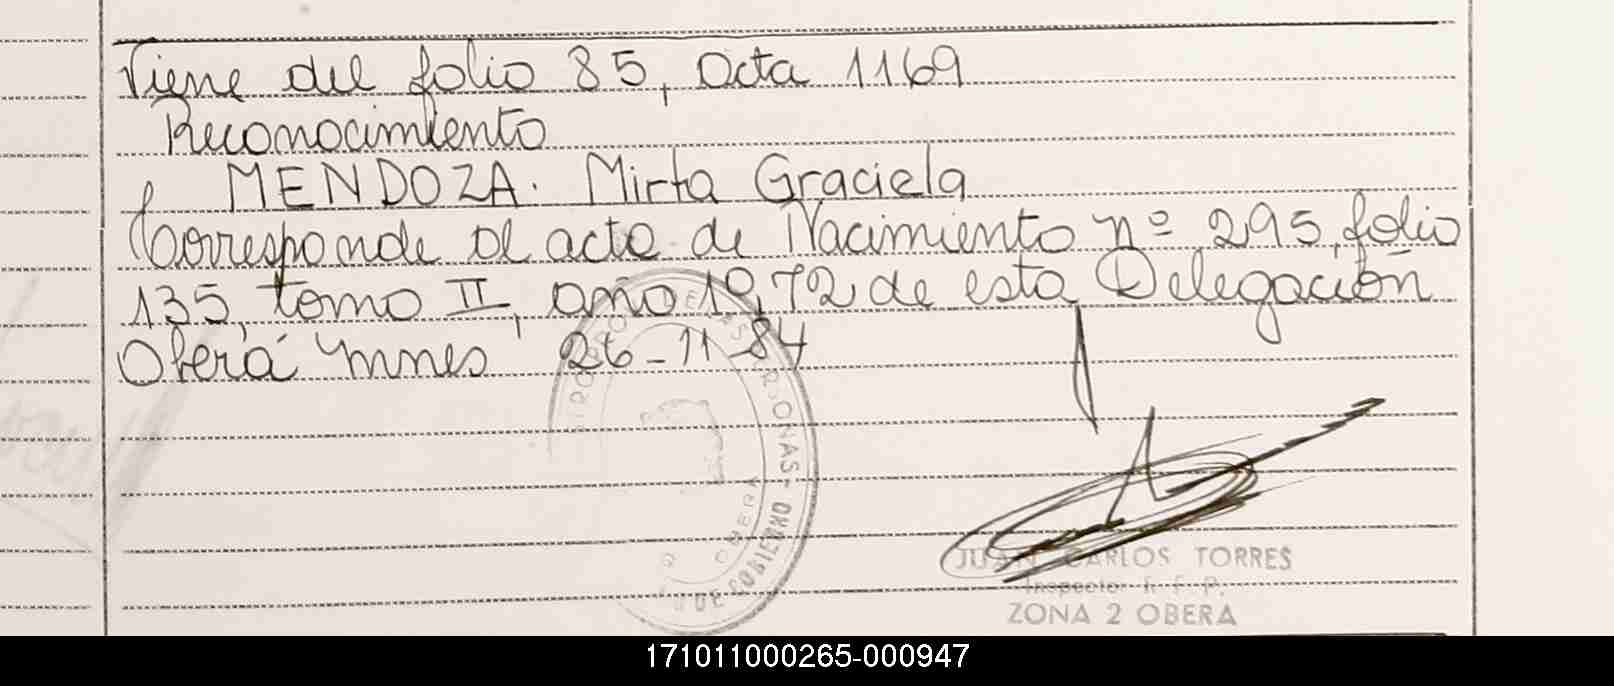 Viene del folio 85, Acta 1169
Reconocimiento
MENDOZA. Mirta Graciela
Corresponde al acta de Nacimiento nº 295, folio
135, tomo II, año 1972 de esta Delegación
Oberá Mnes 26-11-84
DE LAS PERSONAS
OBERA
JUAN CARLOS TORRES
Inspector R. F. P.
ZONA 2 OBERA
171011000265-000947